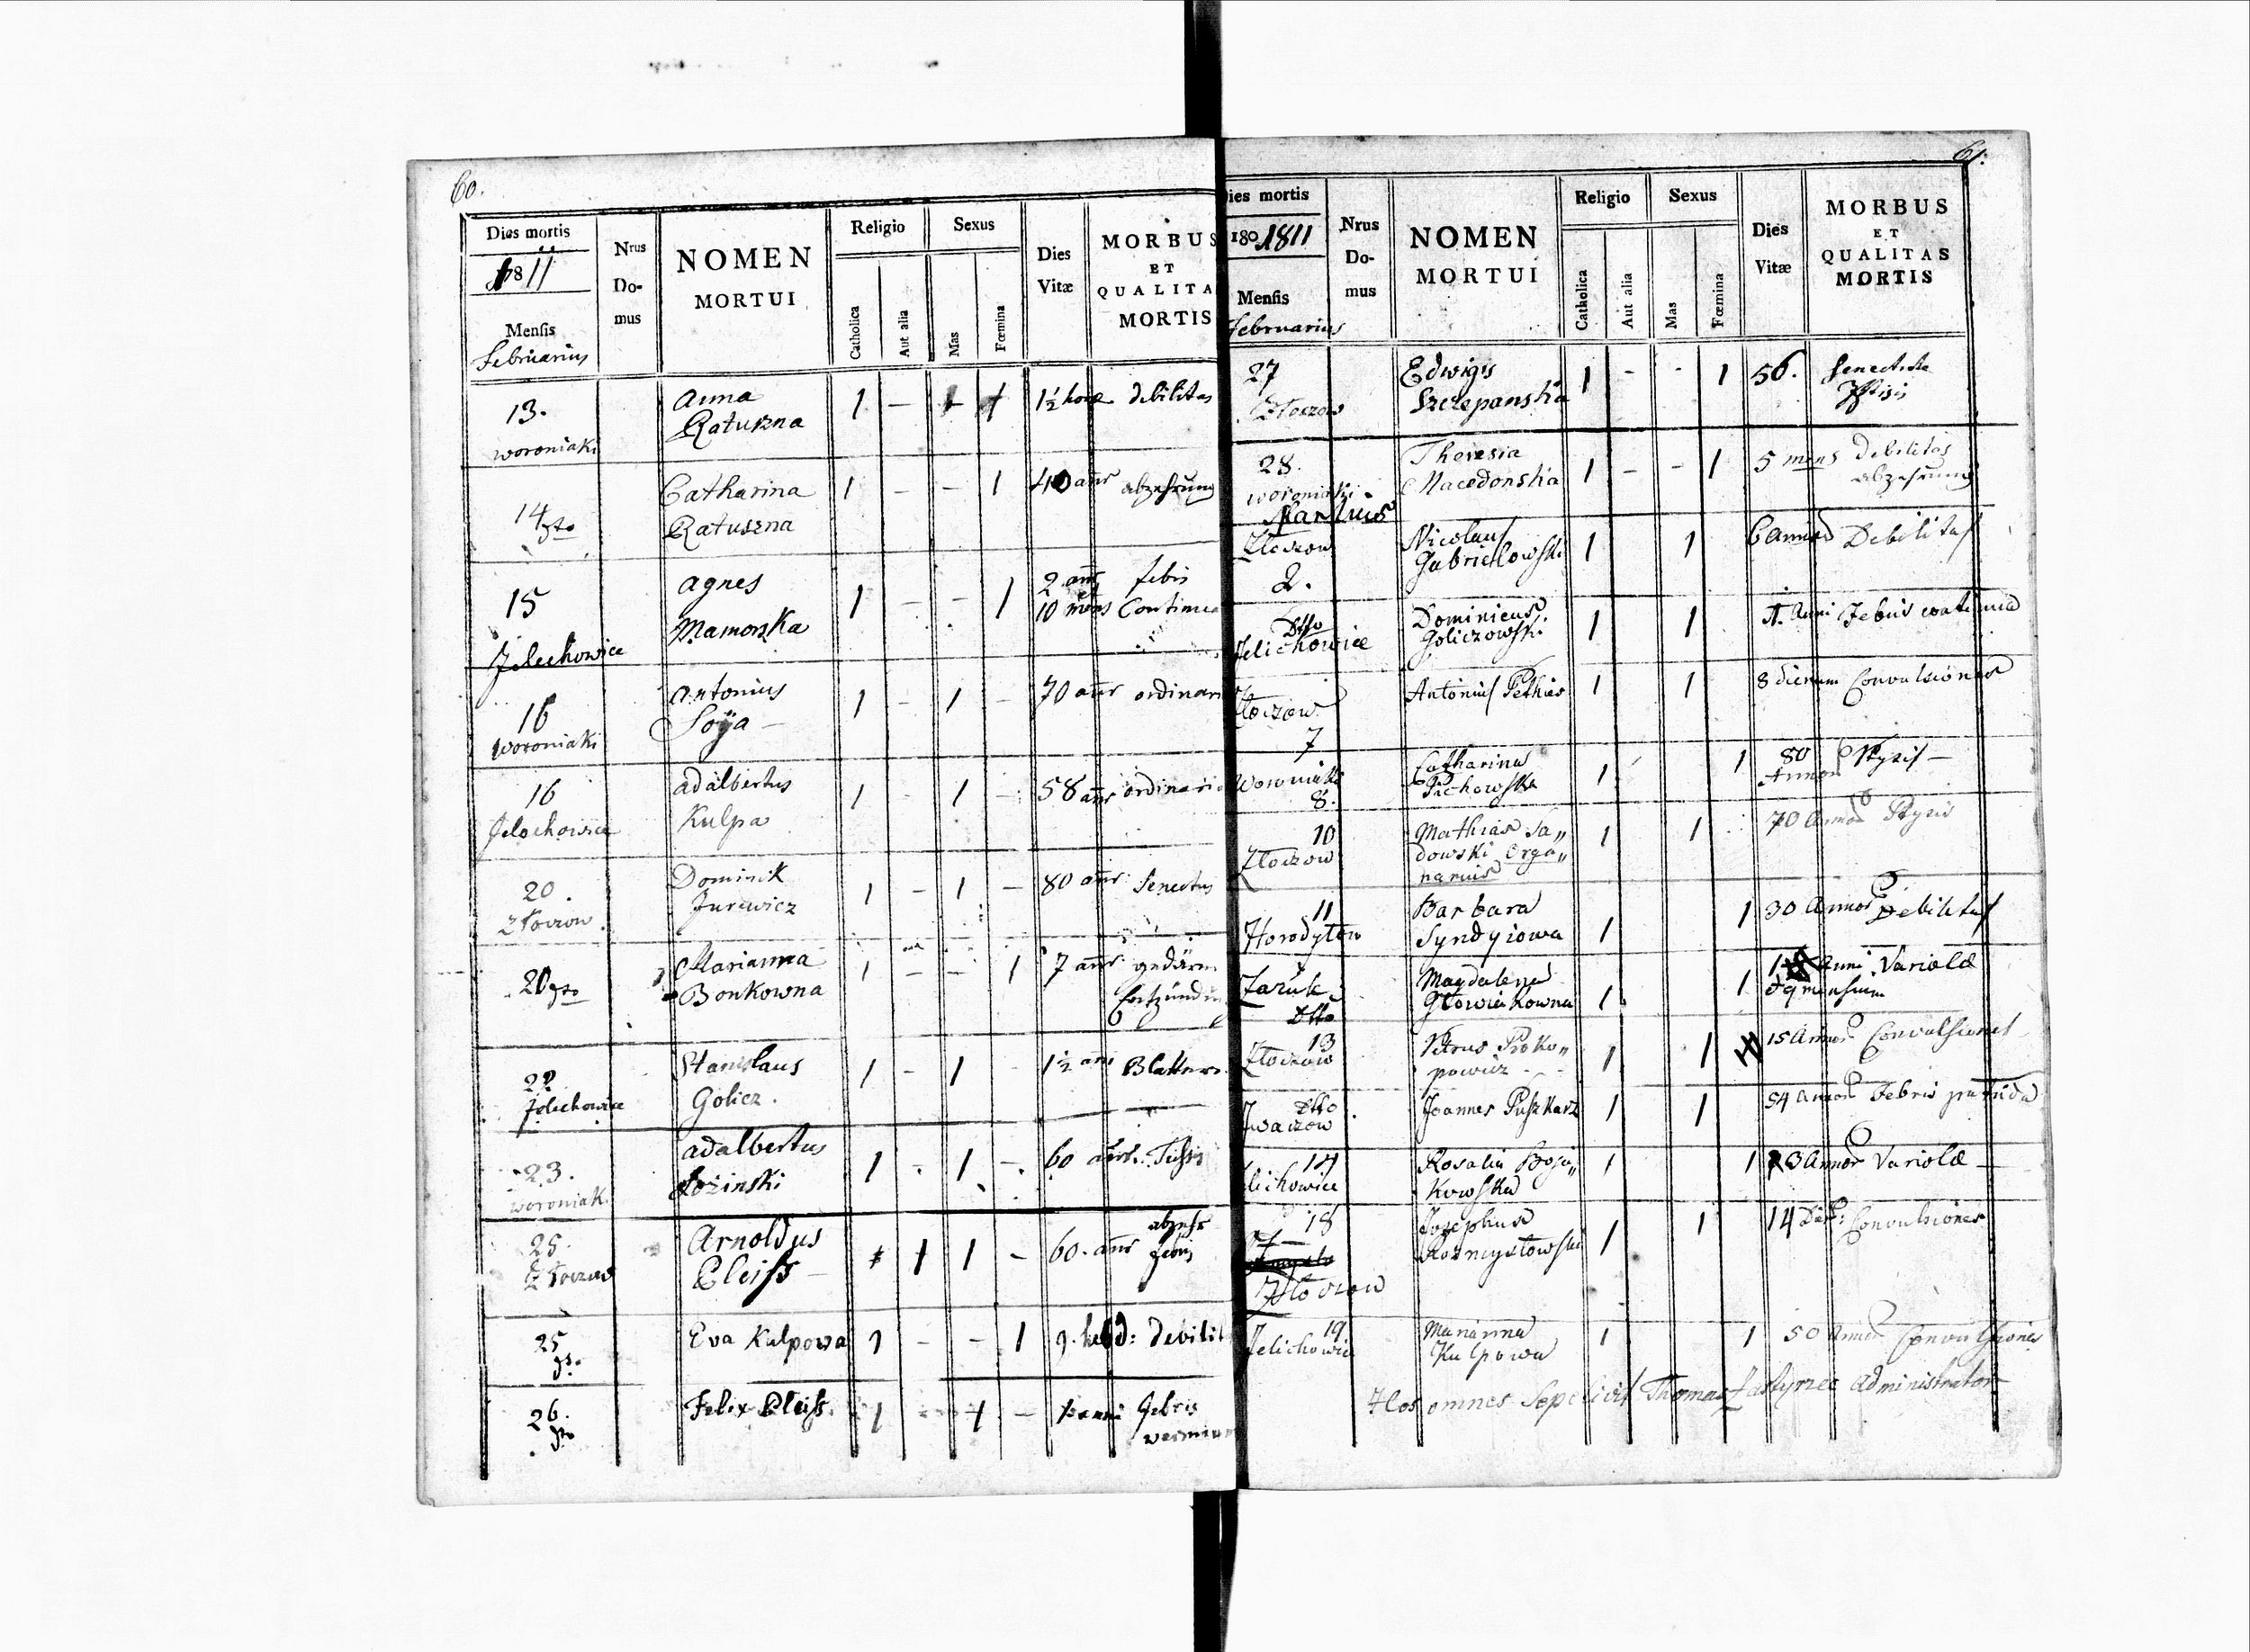 60.
Dies mortis
1811
Mensis
februarius
Nrus
Do-
mus
NOMEN
MORTUI
Religio
Catholica
Aut alia
Sexus
Mas
Fœmina
Dies
Vitæ
MORBUS
ET
QUALITA
MORTIS
13. Anna 1 - 1½ horæ debilitas
woroniaki Raturna
14 dto Catharina 1 - - 1 40 anr abzehrung
Ratuszna
15 agnes 1 - - 1 2 anr febris
10 mens Continua
Jelechowice Mamorska
16 antonius 1 - 1 - 70 anr ordinari
woroniaki Soÿa -
16 adalbertus 1 - 1 - 58 anr ordinaria
Jelechowice Kulpa
20. Dominik 1 - 1 - 80 anr Senectus
Złoczow Jurewicz
20 dto Marianna 1 - - 1 7 anr gedärm
Bonkowna Entzündu
22 Stanislaus 1 - 1 - 1½ ani Blattern
Jelechowice Golicz.
23. adalbertus 1 - 1 - 60 anr. Tussis
woroniak. Łozinski
25. Arnoldus 1 1 - 60. anr abzehr
Złoczow Pleiss - febris
25 Eva Kulpowa 1 - - 1 9. hebd: Debilit
dto
26. Felix Pleiss 1 1 - anni febris
dto vermin
61.
Dies mortis
180 1811
Mensis
Februarius
Nrus
Do-
mus
NOMEN
MORTUI
Religio
Catholica
Aut alia
Sexus
Mas
Fœmina
Dies
Vitæ
MORBUS
ET
QUALITAS
MORTIS
27 Edwigis 1 - - 1 56. Senectute
Złoczow Szczepanska Ptisis
28. Theresia 1 - - 1 5 mens Debilitas
woroniaki Macedonska abzehrung
Martius
Złoczow Nicolaus 1 1 6 Annor Debilitas
2. Gabrielowski
Dtto Dominicus 1 1 Anni Febris continua
Jelichowice Goliczowski
Złoczow Antonius Pethier 1 1 8 dierum Convulsiones
7
Woroniaki Catharina 1 1 80 Ptysis -
8. Pichowska Annor
10 Mathias Sa„ 1 1 70 Annor Ptysis
Złoczow dowski Orga„
narius
11 Barbara 1 1 30 Annor Debilitas
Horodyłow Syndyiowa
Zaruk Magdalena 1 1 1 Anni Variolæ
Dtto Głowiakowna 1 et 9 mensium
13 Petrus Proko„ 1 1 15 Annor Convulsiones
Złoczow powicz
Dtto Joannes Puszkarz 1 1 54 Annor Febris putrida
Zwaczow
14 Rosalia Boja„ 1 1 3 Annor Variolæ -
Jelichowice Kowska
18 Josephus 1 1 14 Dier: Convulsiones
Rozmysłowski
Złoczow
19 Marianna 1 1 50 Annor Convulsiones
Jelichowice Kulpowa
Hos omnes Sepelivit Thomas Administrator